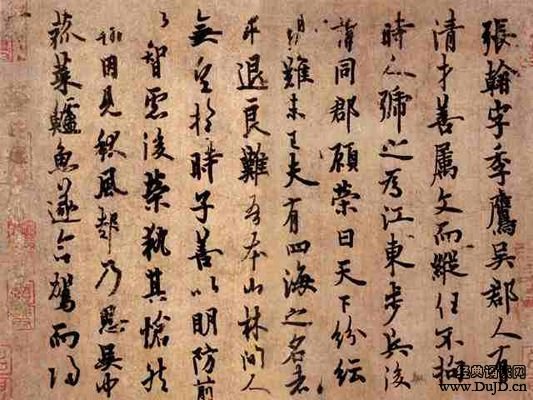 張翰字季鷹吳郡人有
清才善屬文而縱任不拘
時人號之為江東步兵後
謂同郡顧榮曰天下紛紜
禍難未已夫有四海之名者
求退良難吾本山林間人
無望於時子善以明防前
以智慮後榮執其愴然
翰因見秋風起乃思吳中
菰菜鱸魚遂命駕而歸
www.DujD.cn